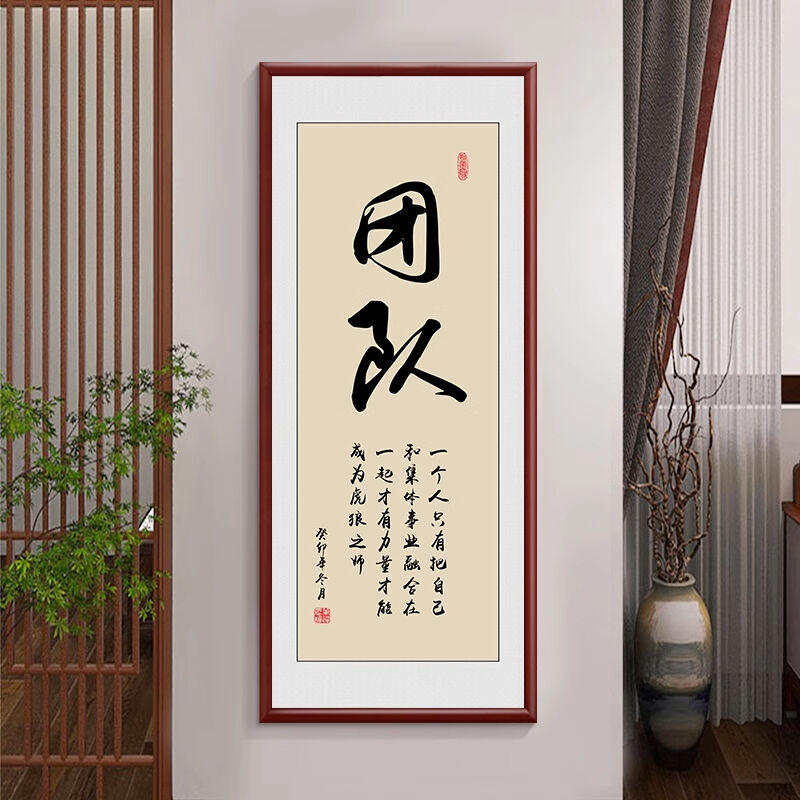 团队
一个人只有把自己
和集体事业融合在
一起才有力量才能
成为虎狼之师
癸卯年冬月